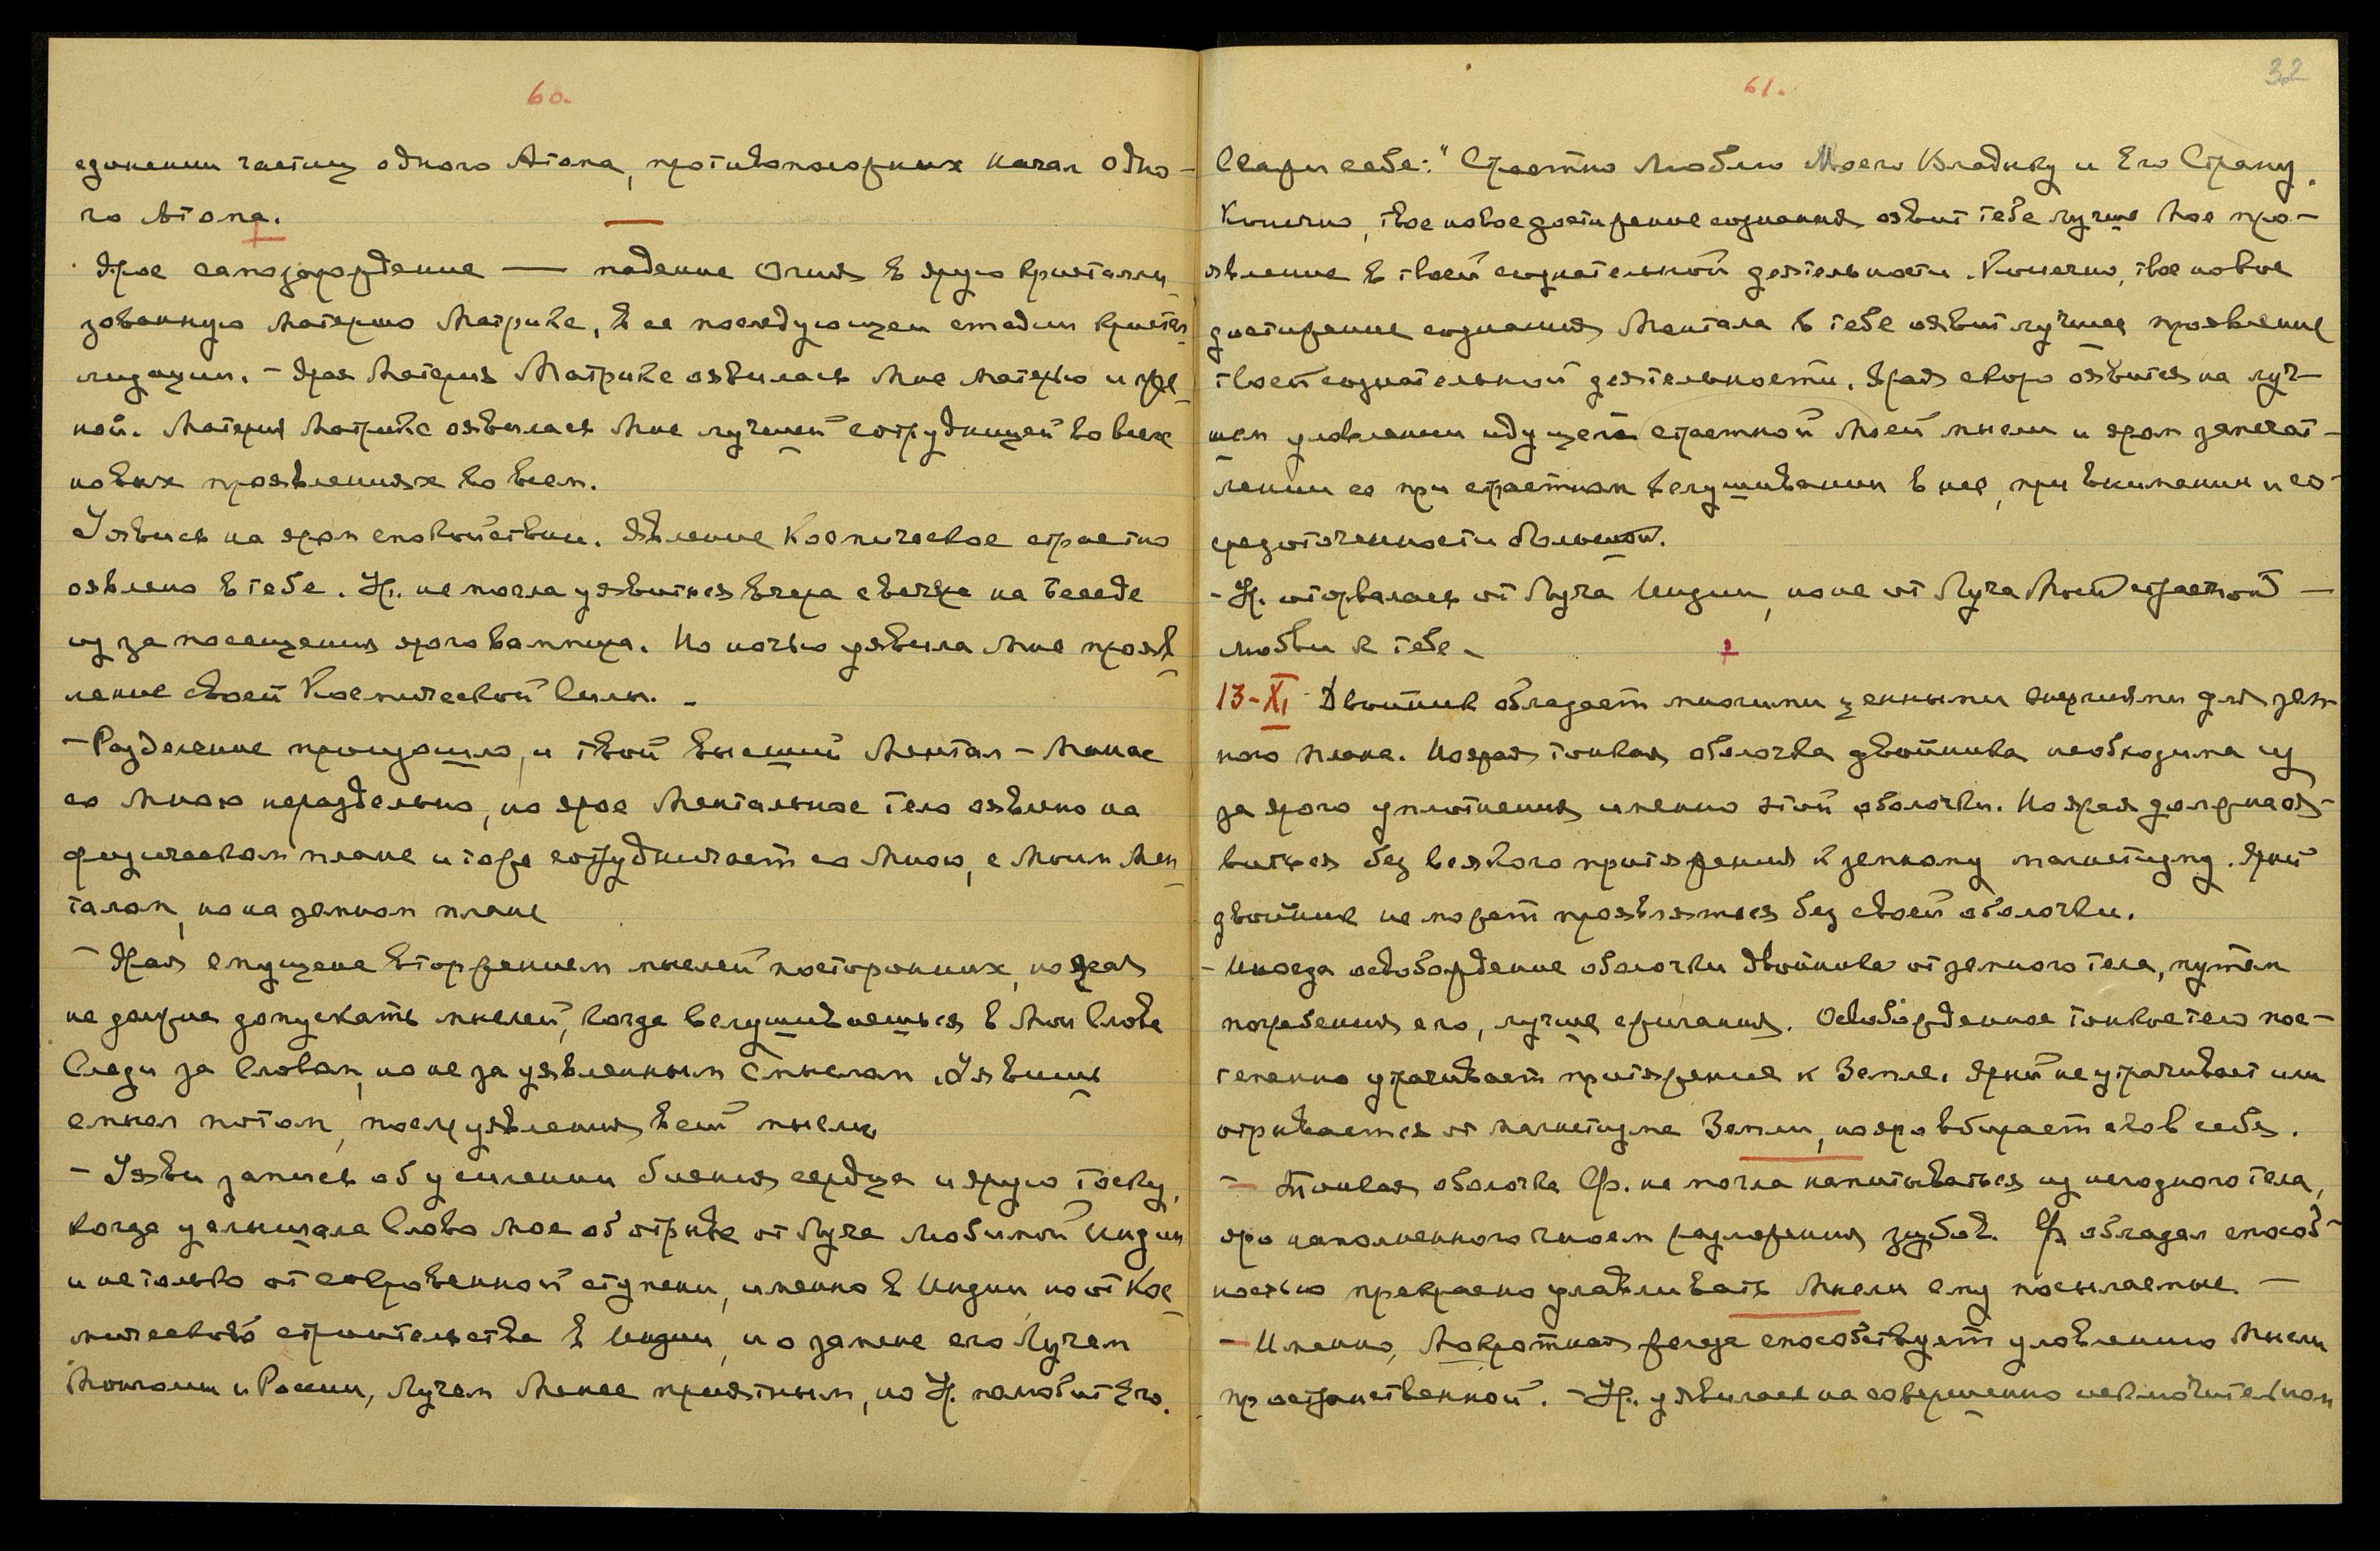 60.
единении частиц одного Атома, противоположных начал одно-
го Атома.
Ярое самозарождение — падение Огня в ярую кристалли-
зованную Материю Матрикс, в ее последующем стадии кристал-
лизации. – Ярая Материя Матрикс оявилась Мне Матерью и Же-
ной. Материя Матрикс оявилась Мне лучшей сотрудницей во всех
новых проявлениях во всем.
Уявись на яром спокойствии. Явление Космическое страстно
оявлено в тебе. Ур. не могла уявиться вчера вечером на Беседе
из за посещения ярого вампира. Но ночью уявила Мне прояв-
ление своей Космической Силы. –
– Разделение произошло, и твой высший Ментал – Манас
со Мною нераздельно, но ярое Ментальное тело оявлено на
физическом плане и тоже сотрудничает со Мною, с Моим Мен-
талом, но на земном плане
– Ярая смущена вторжением мыслей посторонних, но ярая
не должна допускать мыслей, когда вслушиваешься в Мои Слова
Следи за Словом, но не за уявленным Смыслом. Уявишь
смысл потом, после уявления всей мысли
– Уяви запись об усилении биения сердца и ярую тоску,
когда услышала Слово Мое об отрыве от Луча любимой Индии
и не только от сокровенной ступени, именно в Индии но от Кос-
мического строительства в Индии, и о замене его Лучем
Монголии и России, Лучем Менее приятным, но Ур. полюбит Его.
61.
32
Скажи себе: "Страстно люблю Моего Владыку и Его Страну.
Конечно, твое новое достижение сознания оявит тебе лучше Мое про-
явление в твоей сознательной деятельности. Конечно, твое новое
достижение сознания Ментала в тебе оявит лучшее проявление
твоей сознательной деятельности. Ярая скоро оявится на луч-
шем уловлении идущей страстной Моей мысли и яром запечат-
лении ее при страстном вслушивании в нее, при внимании и со-
средоточенности большой.
– Ур. оторвалась от Луча Индии, но не от Луча Моей страстной –
любви к тебе –
13-XI Двойник обладает многими ценными энергиями для зем-
ного плана. Но ярая тонкая оболочка двойника необходима из
за ярого уплотнения именно этой оболочки. Но ярая должна оя-
виться без всякого притяжения к земному магнетизму. Ярый
двойник не может проявляться без своей оболочки.
– Иногда освобождение оболочки двойника от земного тела, путем
погребения его, лучше сжигания. Освобожденное тонкое тело пос-
тепенно утрачивает притяжение к Земле. Ярый не утрачивает или
отрывается от магнетизма Земли, но яро вбирает его в себя.
– Тонкая оболочка Ф. не могла напитываться из негодного тела,
яро наполненного гноем разложения зубов. Ф. обладал способ-
ностью прекрасно улавливать Мысли ему посылаемые –
– Именно, Мокротная железа способствует уловлению Мысли
пространственной. – Ур. уявилась на совершенно исключительном